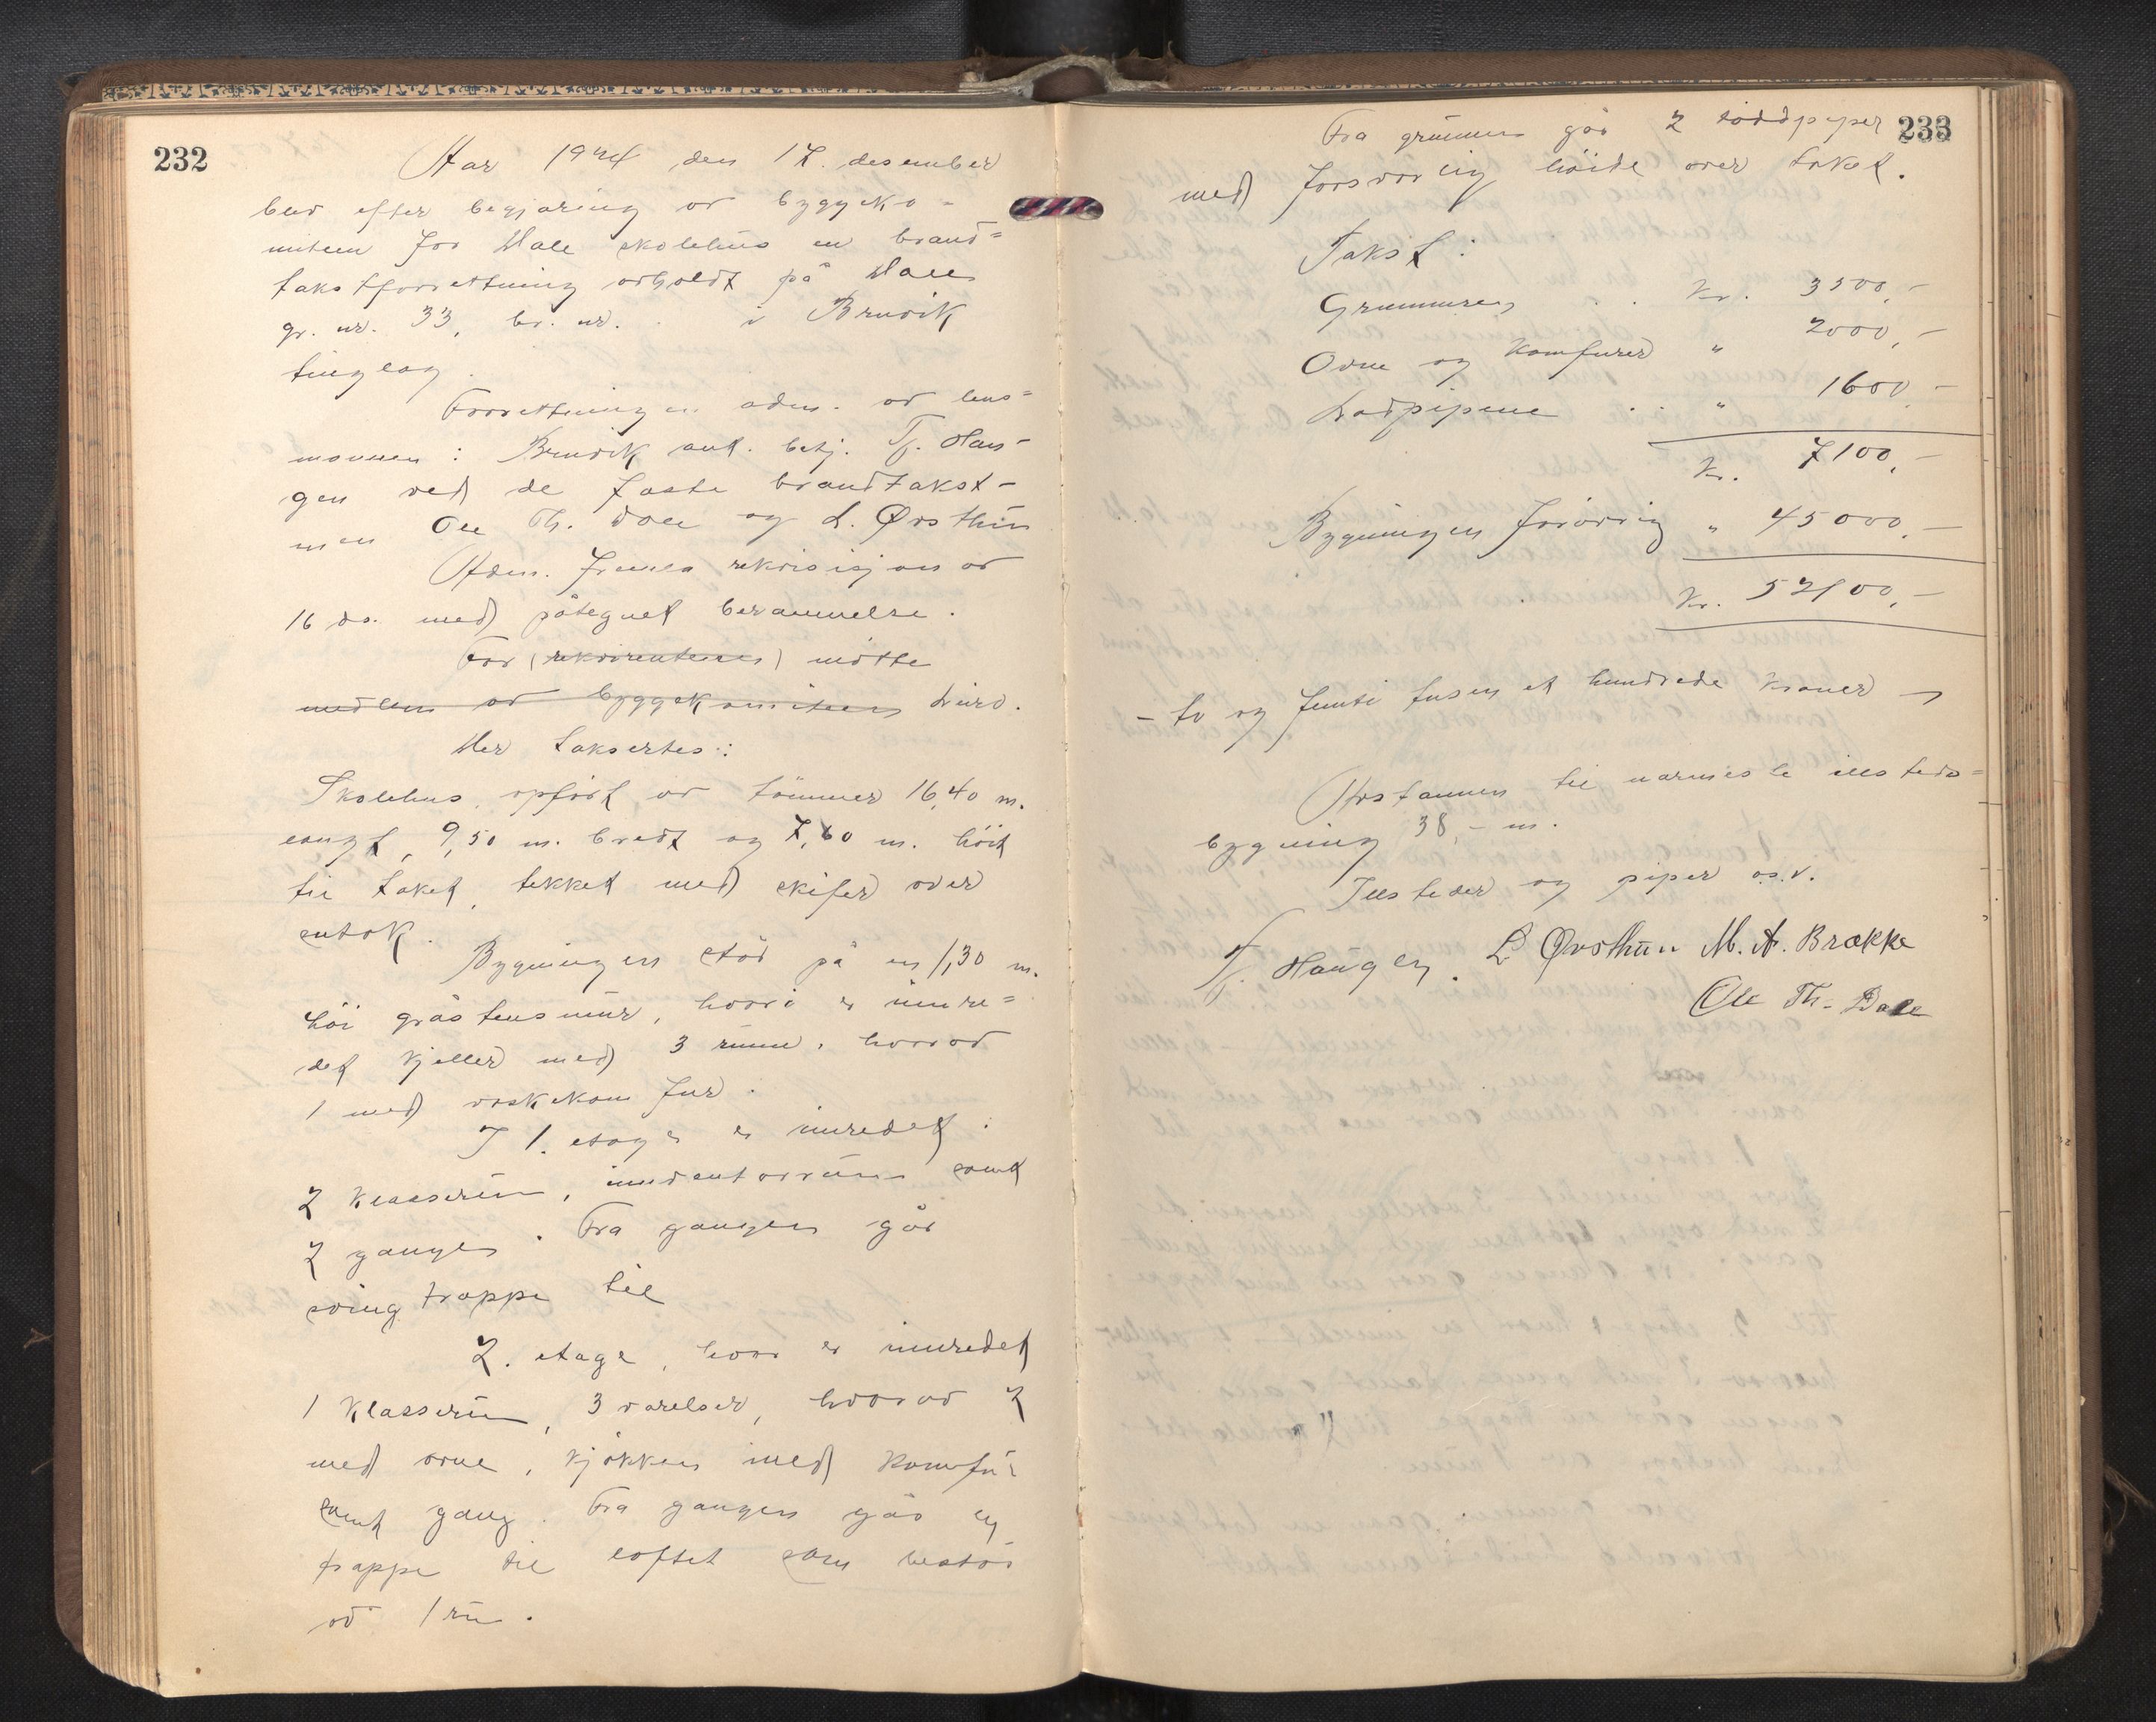 232
Aar 1924 den 17. desember
blev efter begjæring av byggeko-
miteen for Dale skolehus en brand=
takstforretning avholdt på Dale
gr. nr. 33, br. nr. i Bruvik
tinglag.
Forretningen adm. av lens=
mannen i Bruvik aut. betj. Tj. Hau-
gen ved de faste brandtakst-
men Ole Th. Dale og L. Ørsthun
Adm. fremla rekvisisjon av
16 ds. med påtegnet berammelse.
For (rekvirenteren) møtte
medlem av byggekomiteen
Her taksertes:
Skolehus, opført av tømmer 16,40 m.
langt, 9,50 m. bredt og 7,60 m. høit
til taket, tekket med skifer over
sutak.
Bygningen står på en 1,30 m.
høi gråstensmur, hvori er innre=
det kjeller med 3 rum, hvorav
1 med vaskekomfur.
I 1. etage er innredet:
2 klasserum, inventarrum samt
2 ganger. Fra gangen går
svingtrappe til
2. etage, hvor er innredet
1 klasserum, 3 værelser, hvorav 2
med ovne, kjøkken med komfur
samt gang. Fra gangen går en
trappe til loftet som består
av 1 rum.
233
Fra grunnen går 2 loddpiper
med forsvarlig høide over taket.
Takst:
Grunnmuren . . kr. 3500,-
Ovne og komfurer " 2000,-
Lodpipene . . " 1600,-
Kr. 7100,-
Bygningen forøvrig " 45000,-
Kr. 52100,-
- to og femti tusen et hundrede kroner -
Avstannen til nærmeste illsteds=
bygning 38,- m.
Illsteder og piper o.s.v.
Tj. Haugen. L Ørsthun M. A. Brække
Ole Th. Dale